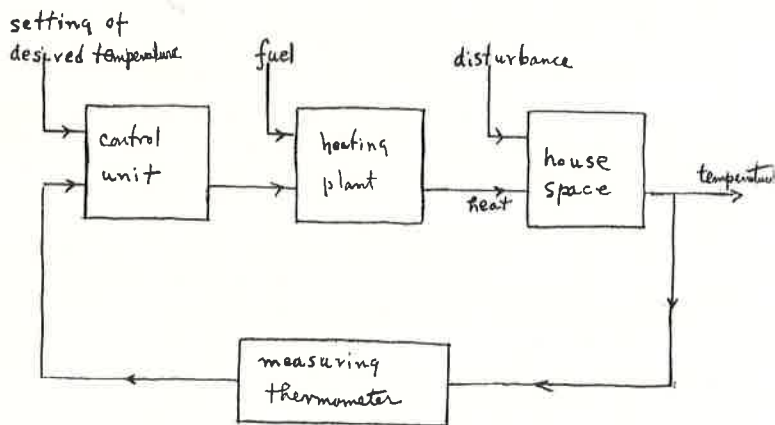 setting of
desired temperature
fuel
disturbance
control
unit
heating
plant
heat
house
space
temperature
measuring
thermometer